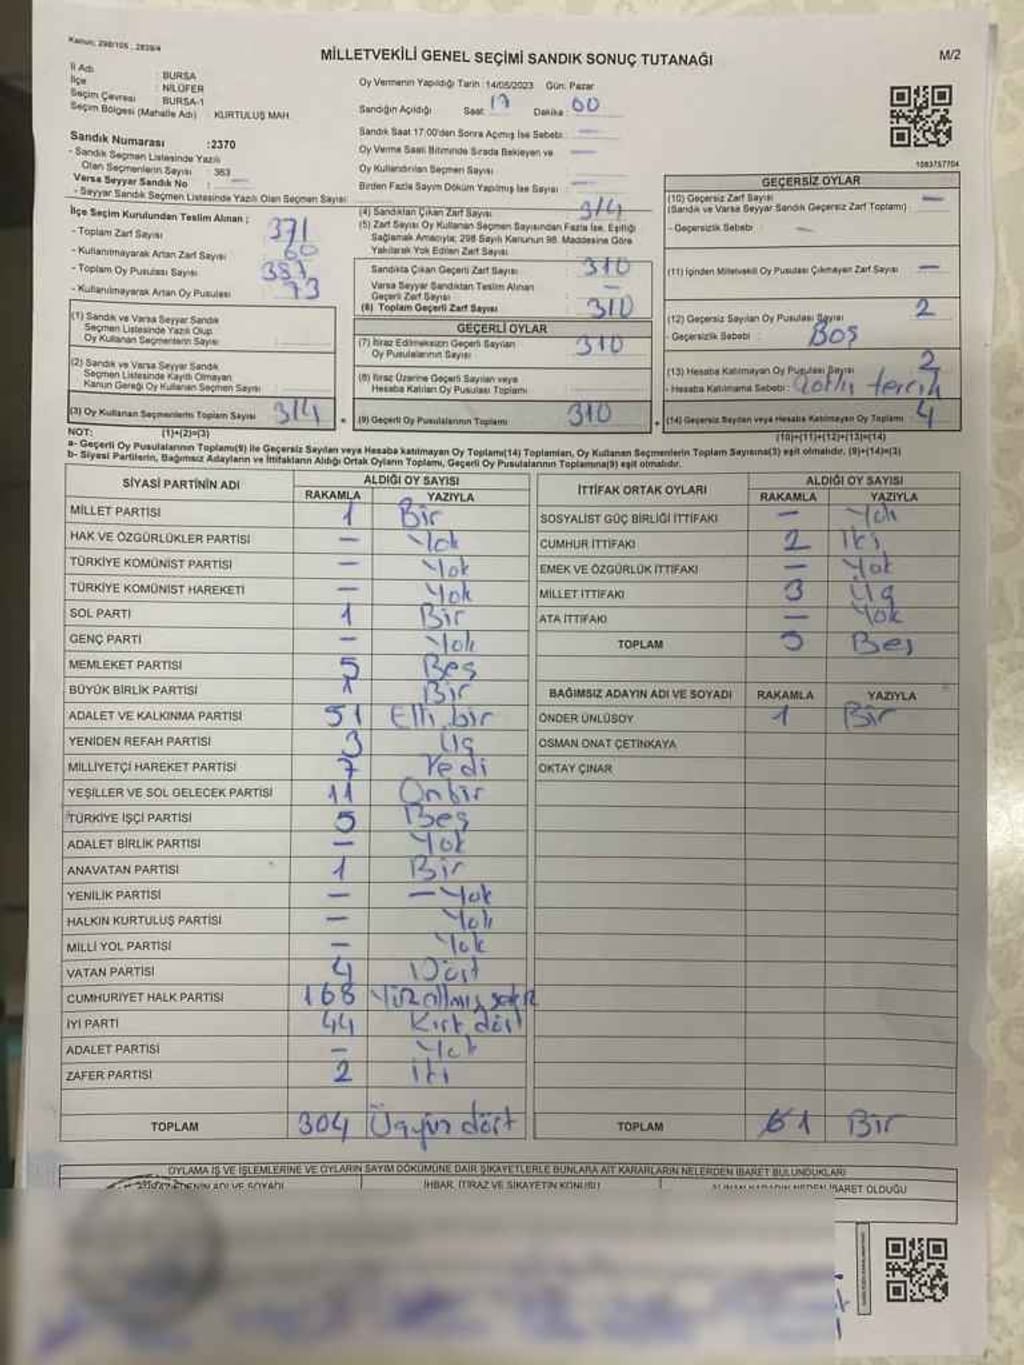 Kanun: 298/105 , 2839/4
MİLLETVEKİLİ GENEL SEÇİMİ SANDIK SONUÇ TUTANAĞI
M/2
İl Adı : BURSA
İlçe : NİLÜFER
Seçim Çevresi : BURSA-1
Seçim Bölgesi (Mahalle Adı) : KURTULUŞ MAH.
Sandık Numarası :2370
- Sandık Seçmen Listesinde Yazılı
Olan Seçmenlerin Sayısı : 363
Varsa Seyyar Sandık No : —
- Seyyar Sandık Seçmen Listesinde Yazılı Olan Seçmen Sayısı
İlçe Seçim Kurulundan Teslim Alınan ;
- Toplam Zarf Sayısı 371
- Kullanılmayarak Artan Zarf Sayısı 60
- Toplam Oy Pusulası Sayısı
- Kullanılmayarak Artan Oy Pusulası 73
(1) Sandık ve Varsa Seyyar Sandık
Seçmen Listesinde Yazılı Olup
Oy Kullanan Seçmenlerin Sayısı :
(2) Sandık ve Varsa Seyyar Sandık
Seçmen Listesinde Kayıtlı Olmayan
Kanun Gereği Oy Kullanan Seçmen Sayısı :
(3) Oy Kullanan Seçmenlerin Toplam Sayısı 314
(1)+(2)=(3)
Oy Vermenin Yapıldığı Tarih : 14/05/2023 Gün: Pazar
Sandığın Açıldığı Saat: 17 Dakika : 00
Sandık Saat 17:00'den Sonra Açılmış İse Sebebi : —
Oy Verme Saati Bitiminde Sırada Bekleyen ve —
Oy Kullandırılan Seçmen Sayısı
Birden Fazla Sayım Döküm Yapılmış İse Sayısı : —
(4) Sandıktan Çıkan Zarf Sayısı 314
(5) Zarf Sayısı Oy Kullanan Seçmen Sayısından Fazla İse, Eşitliği
Sağlamak Amacıyla; 298 Sayılı Kanunun 98. Maddesine Göre
Yakılarak Yok Edilen Zarf Sayısı
Sandıkta Çıkan Geçerli Zarf Sayısı 310
Varsa Seyyar Sandıktan Teslim Alınan
Geçerli Zarf Sayısı —
(6) Toplam Geçerli Zarf Sayısı 310
GEÇERLİ OYLAR
(7) İtiraz Edilmeksizin Geçerli Sayılan
Oy Pusulalarının Sayısı 310
(8) İtiraz Üzerine Geçerli Sayılan veya
Hesaba Katılan Oy Pusulası Toplamı
(9) Geçerli Oy Pusulalarının Toplamı 310
1083757704
GEÇERSİZ OYLAR
(10) Geçersiz Zarf Sayısı —
(Sandık ve Varsa Seyyar Sandık Geçersiz Zarf Toplamı)
- Geçersizlik Sebebi : —
(11) İçinden Milletvekili Oy Pusulası Çıkmayan Zarf Sayısı —
(12) Geçersiz Sayılan Oy Pusulası Sayısı 2
- Geçersizlik Sebebi : Boş
(13) Hesaba Katılmayan Oy Pusulası Sayısı 2
- Hesaba Katılmama Sebebi : tercih
(14) Geçersiz Sayılan veya Hesaba Katılmayan Oy Toplamı 4
(10)+(11)+(12)+(13)=(14)
NOT:
a- Geçerli Oy Pusulalarının Toplamı(9) ile Geçersiz Sayılan veya Hesaba katılmayan Oy Toplamı(14) Toplamları, Oy Kullanan Seçmenlerin Toplam Sayısına(3) eşit olmalıdır. (9)+(14)=(3)
b- Siyasi Partilerin, Bağımsız Adayların ve İttifakların Aldığı Ortak Oyların Toplamı, Geçerli Oy Pusulalarının Toplamına(9) eşit olmalıdır.
SİYASİ PARTİNİN ADI ALDIĞI OY SAYISI
RAKAMLA YAZIYLA
MİLLET PARTİSI 1 Bir
HAK VE ÖZGÜRLÜKLER PARTİSİ — Yok
TÜRKİYE KOMÜNİST PARTİSİ — Yok
TÜRKİYE KOMÜNİST HAREKETİ — Yok
SOL PARTİ 1 Bir
GENÇ PARTİ — Yok
MEMLEKET PARTİSI 5 Beş
BÜYÜK BİRLİK PARTİSİ 1 Bir
ADALET VE KALKINMA PARTİSI 51 Elli bir
YENİDEN REFAH PARTİSI 3 Üç
MİLLİYETÇİ HAREKET PARTİSİ 7 Yedi
YEŞİLLER VE SOL GELECEK PARTİSİ 11 Onbir
TÜRKİYE İŞÇİ PARTİSİ 5 Beş
ADALET BİRLİK PARTİSİ — Yok
ANAVATAN PARTİSI 1 Bir
YENİLİK PARTİSİ — — Yok
HALKIN KURTULUŞ PARTİSİ — Yok
MİLLİ YOL PARTİSİ — Yok
VATAN PARTİSİ 4 Dört
CUMHURİYET HALK PARTİSİ 168 Yüz altmış sekiz
İYİ PARTİ 44 Kırk dört
ADALET PARTİSİ — Yok
ZAFER PARTİSİ 2 iki
TOPLAM 304 Üçyüz dört
İTTİFAK ORTAK OYLARI ALDIĞI OY SAYISI
RAKAMLA YAZIYLA
SOSYALİST GÜÇ BİRLİĞİ İTTİFAKI — Yok
CUMHUR İTTİFAKI 2 İki
EMEK VE ÖZGÜRLÜK İTTİFAKI — Yok
MİLLET İTTİFAKI 3 Üç
ATA İTTİFAKI — Yok
TOPLAM 5 Beş
BAĞIMSIZ ADAYIN ADI VE SOYADI RAKAMLA YAZIYLA
ÖNDER ÜNLÜSOY 1 Bir
OSMAN ONAT ÇETİNKAYA
OKTAY ÇINAR
TOPLAM 1 Bir
OYLAMA İŞ VE İŞLEMLERİNE VE OYLARIN SAYIM DÖKÜMÜNE DAİR ŞİKAYETLERLE BUNLARA AİT KARARLARIN NELERDEN İBARET BULUNDUKLARI
ADI VE SOYADI İHBAR, İTİRAZ VE ŞİKAYETİN KONUSU ALINAN KARARIN NEDEN İBARET OLDUĞU